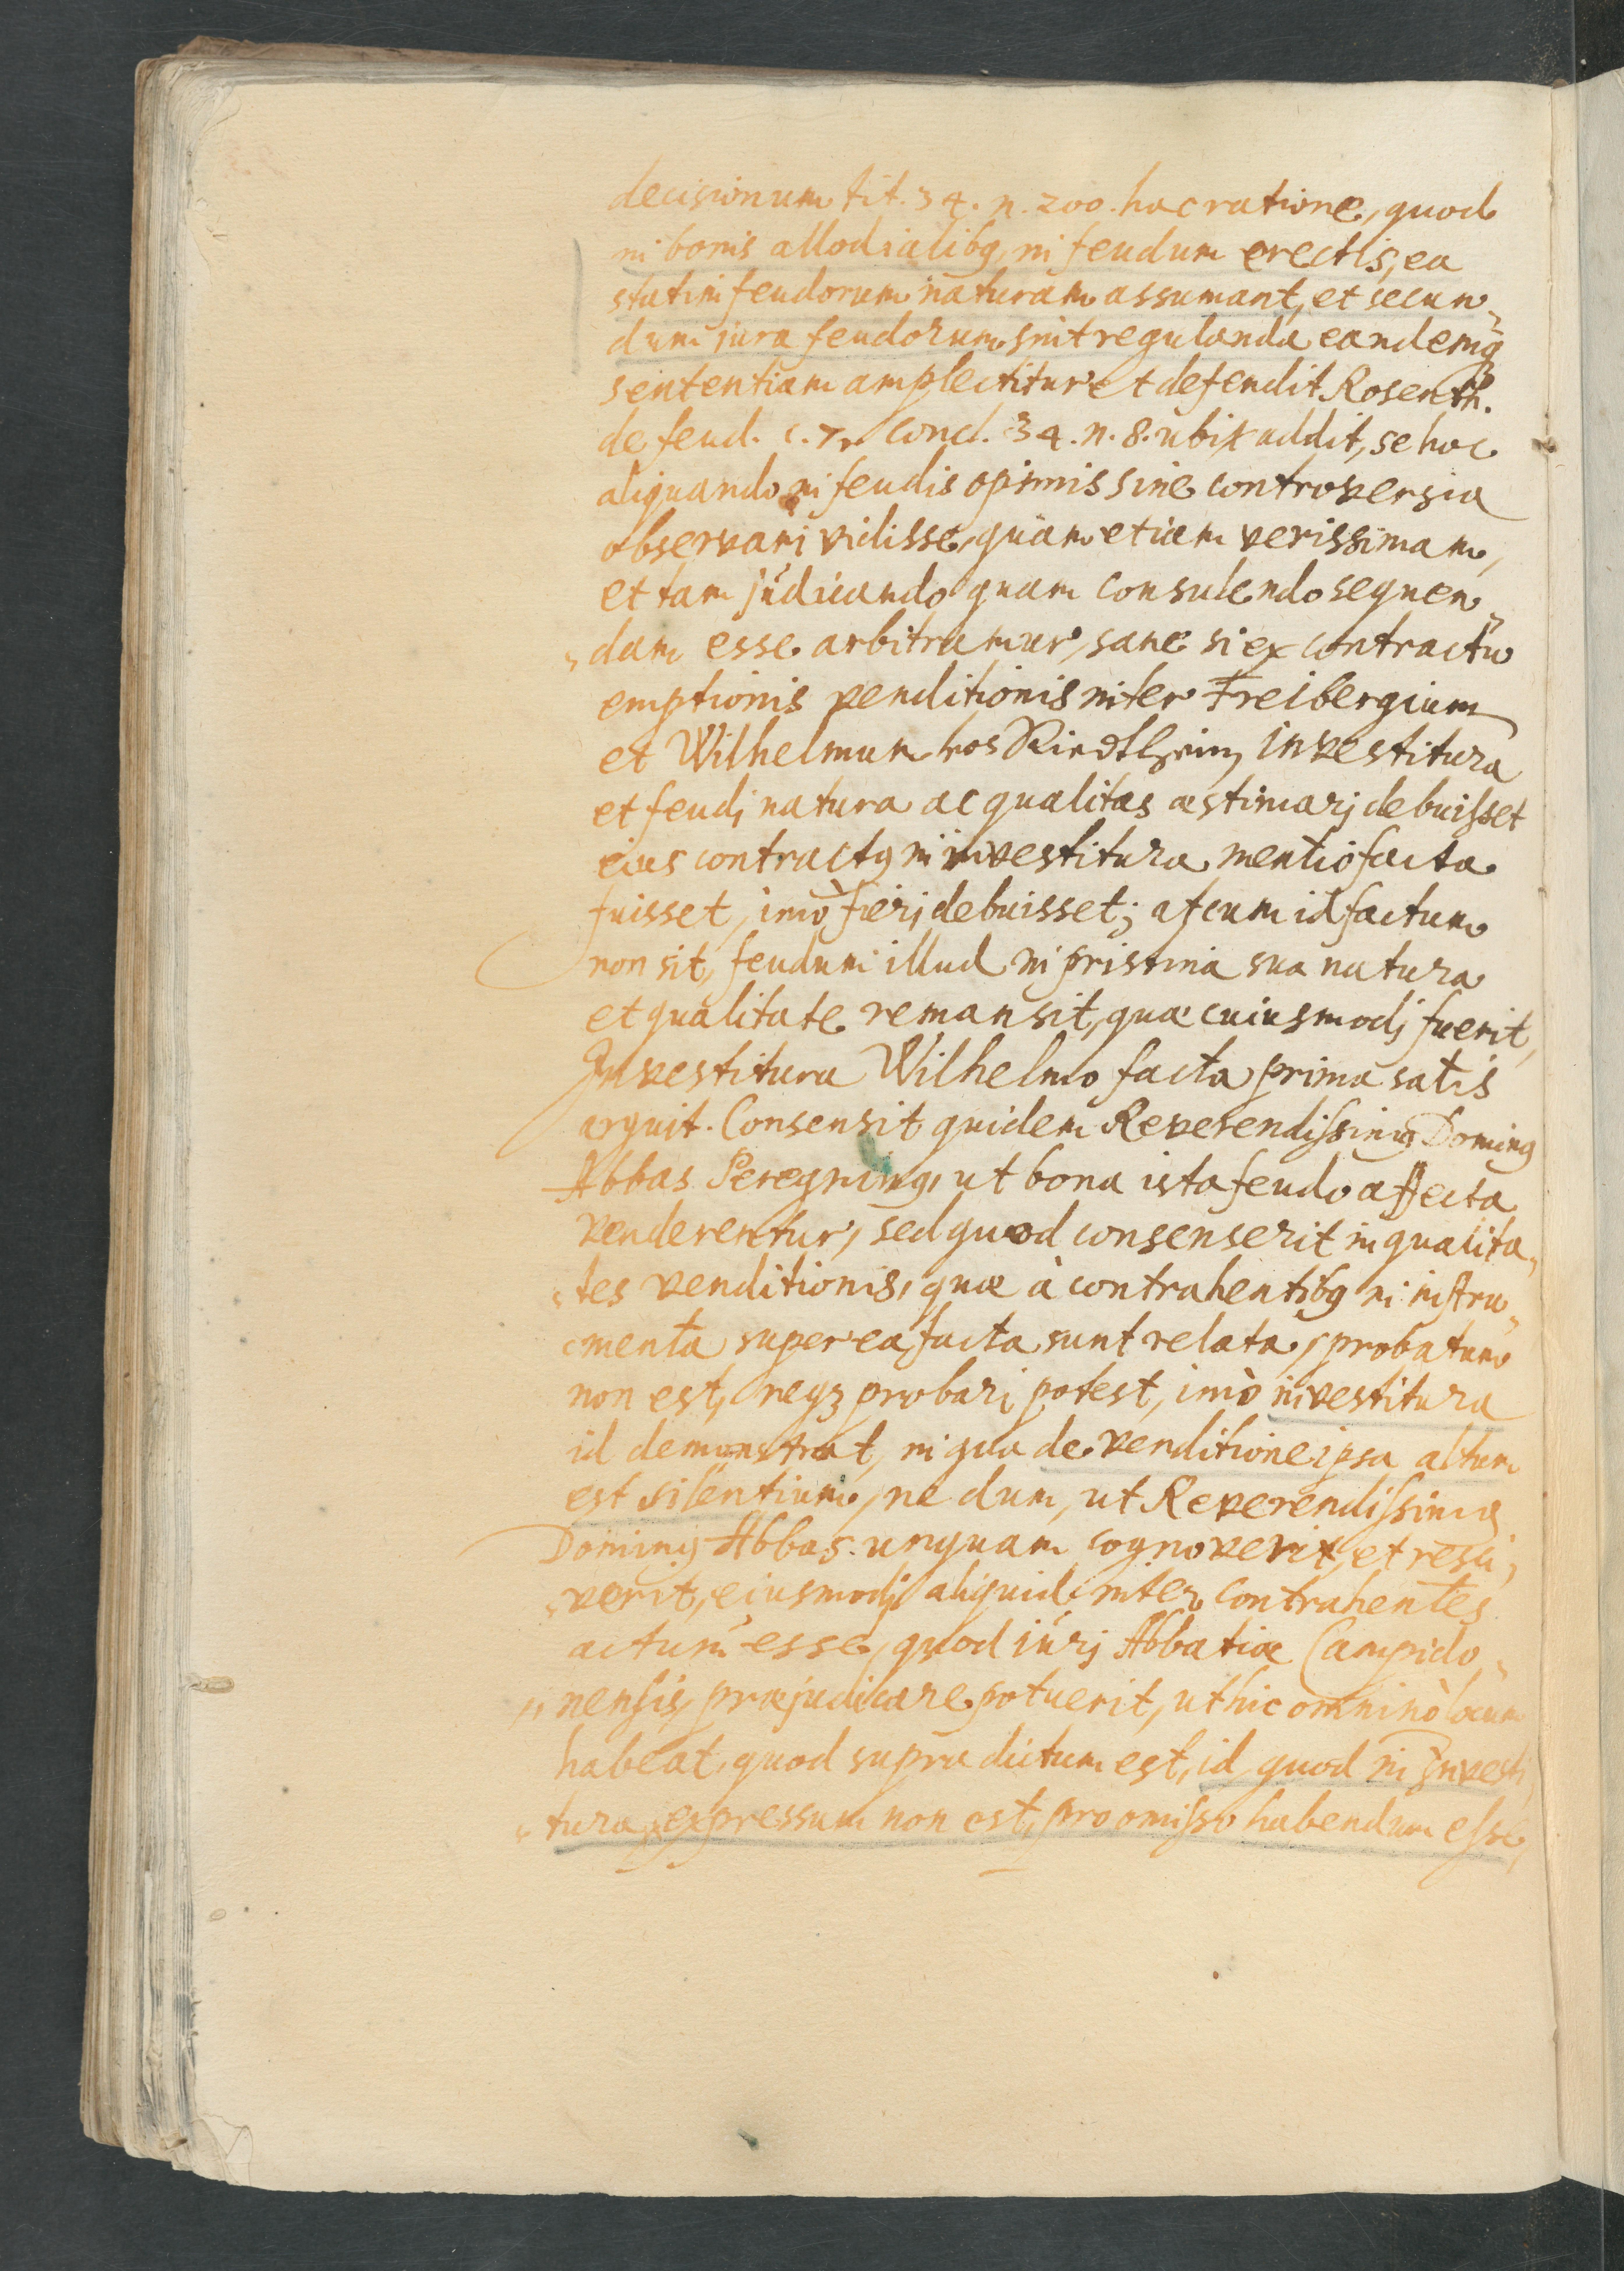 decisionum tit. 34. n. 200. hac ratione, quod
in bonis allodialibq, in feudum erectis, ea
statim feudorum naturam assumant, et secun„
dum jura feudorum sint regulanda eandemq3
sententiam amplectitur et defendit Rosenth.
de feud. c. 7. concl. 34. n. 8. ubi addit, se hoc
aliquando in feudis opimis sine controversia
observari vidisse, quam etiam verissimam,
et tam júdicando quam consulendo sequen„
„dam esse arbitramur, sane si ex contractu
emptionis venditionis inter Freibergium
et Wilhelmum von Riedtheim investitura
et feudi natura ac qualitas æstimari debuisset
eius contractq in investitura mentio facta
fuisset, imò fieri debuisset; at cum id factum
non sit, feudum illud in pristina sua natura
et qualitate remansit, quæ cuiusmodi fuerit,
Investitura Wilhelmo facta prima satis
arguit. Consensit quidem Reverendissimq Dominq
Abbas Peregrinq, ut bona ista feudo affecta
venderentur, sed quod consenserit in qualita„
„tes venditionis, quæ à contrahentibq in instru„
„menta super ea facta sunt relata, probatum
non est, neq3 probari potest, imò investitura
id demonstrat, in qua de venditione ipsa altum
est silentium, ne dum, ut Reverendissimq
Dominq Abbas unquam cognoverit, et resci„
„verit, eiusmodi aliquid inter contrahentes
actum esse, quod iúri Abbatiæ Campido„
„nensis, præjudicare potuerit, ut hic omninò locum
habeat, quod supra dictum est, id quod in Investi„
„tura expressum non est, pro omisso habendum esse,